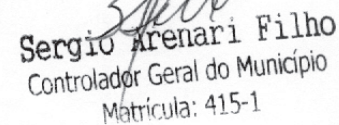 Sergio Arenari Filho
Controlador Geral do Município
Matrícula: 415-1